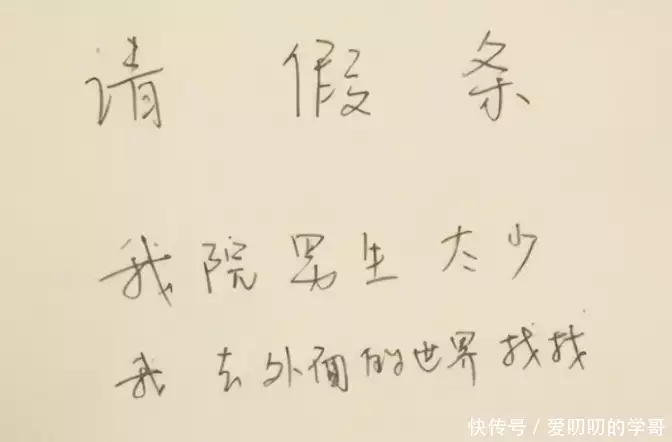 请 假 条
我院男生太少
我去外面的世界找找
快传号／爱叨叨的学哥